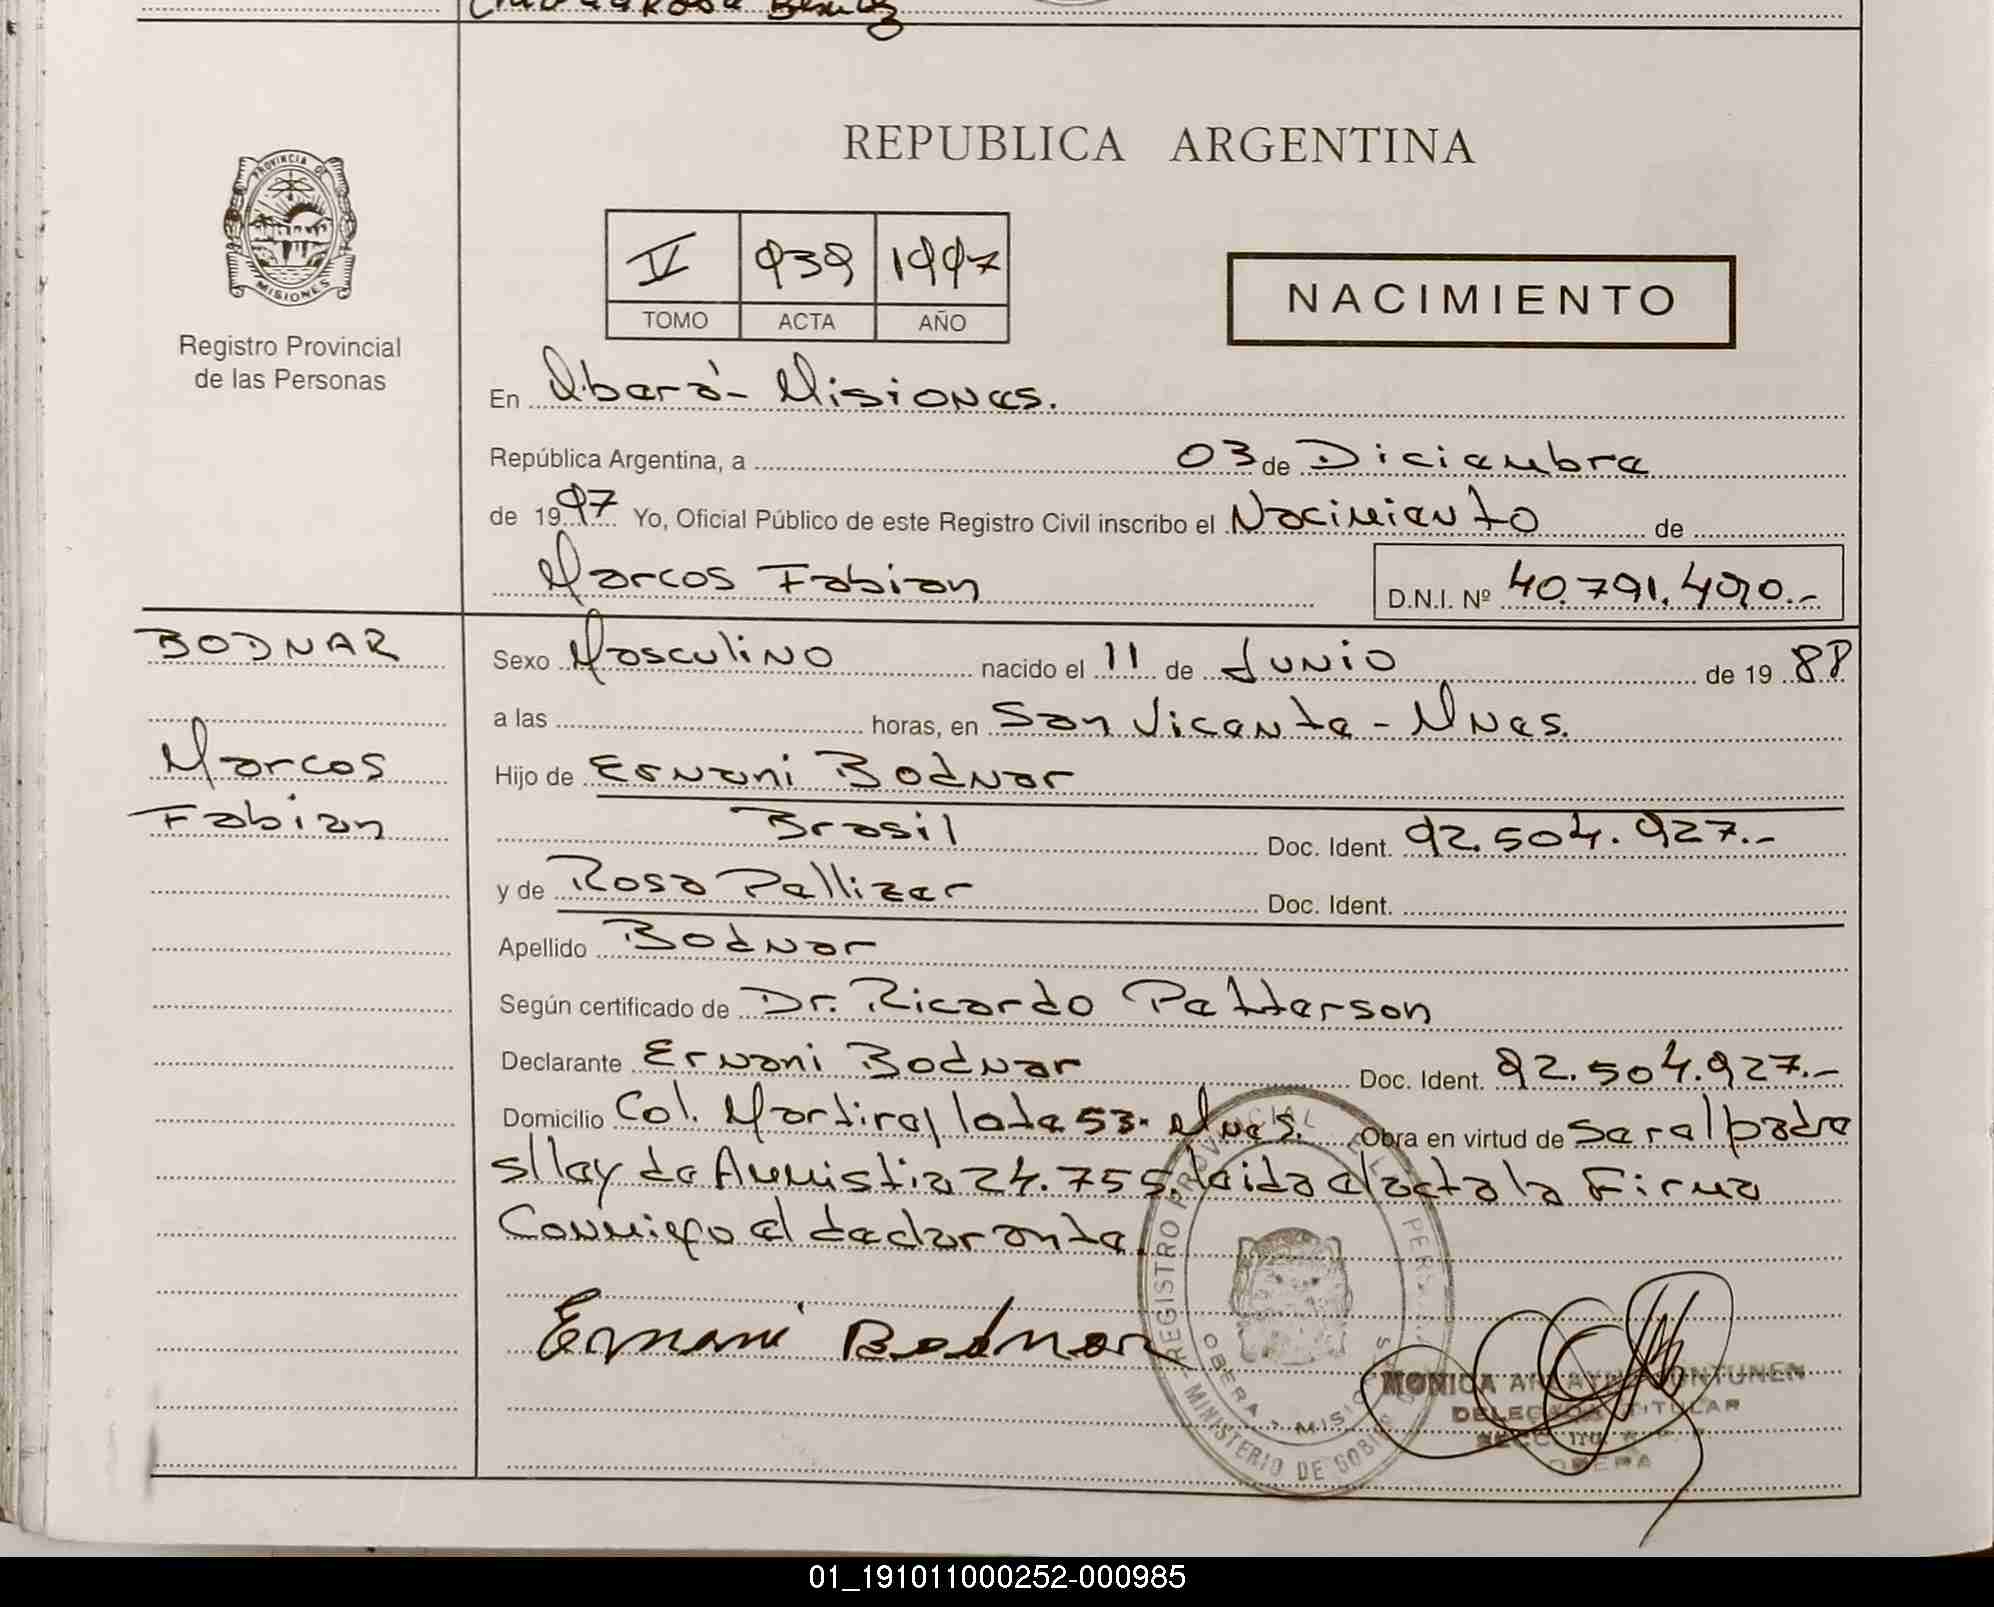 REPUBLICA ARGENTINA
PROVINCIA DE
MISIONES
Registro Provincial
de las Personas
IV 939 1997
TOMO ACTA AÑO
NACIMIENTO
En Oberá - Misiones.
República Argentina, a 03 de Diciembre
de 1997 Yo, Oficial Público de este Registro Civil inscribo el Nacimiento de
Marcos Fabian D.N.I. Nº 40.791.490.-
BODNAR
Marcos
Fabian
Sexo Masculino nacido el 11 de Junio de 1988
a las horas, en San Vicente - Mnes.
Hijo de Ernani Bodnar
Brasil Doc. Ident. 92.504.927.-
y de Rosa Pellizer Doc. Ident.
Apellido Bodnar
Según certificado de Dr. Ricardo Petterson
Declarante Ernani Bodnar Doc. Ident. 92.504.927.-
Domicilio Col. Martires lote 53. Mnes. Obra en virtud de ser el padre
s/ley de Amnistia 24.755. leida el acta la Firma
Conmigo el declarante.
Ernani Bodnar
REGISTRO PROVINCIAL DE LAS PERSONAS
MINISTERIO DE GOBIERNO
OBERA - MISIONES
MONICA
DELEGADA TITULAR
OBERA
01_191011000252-000985